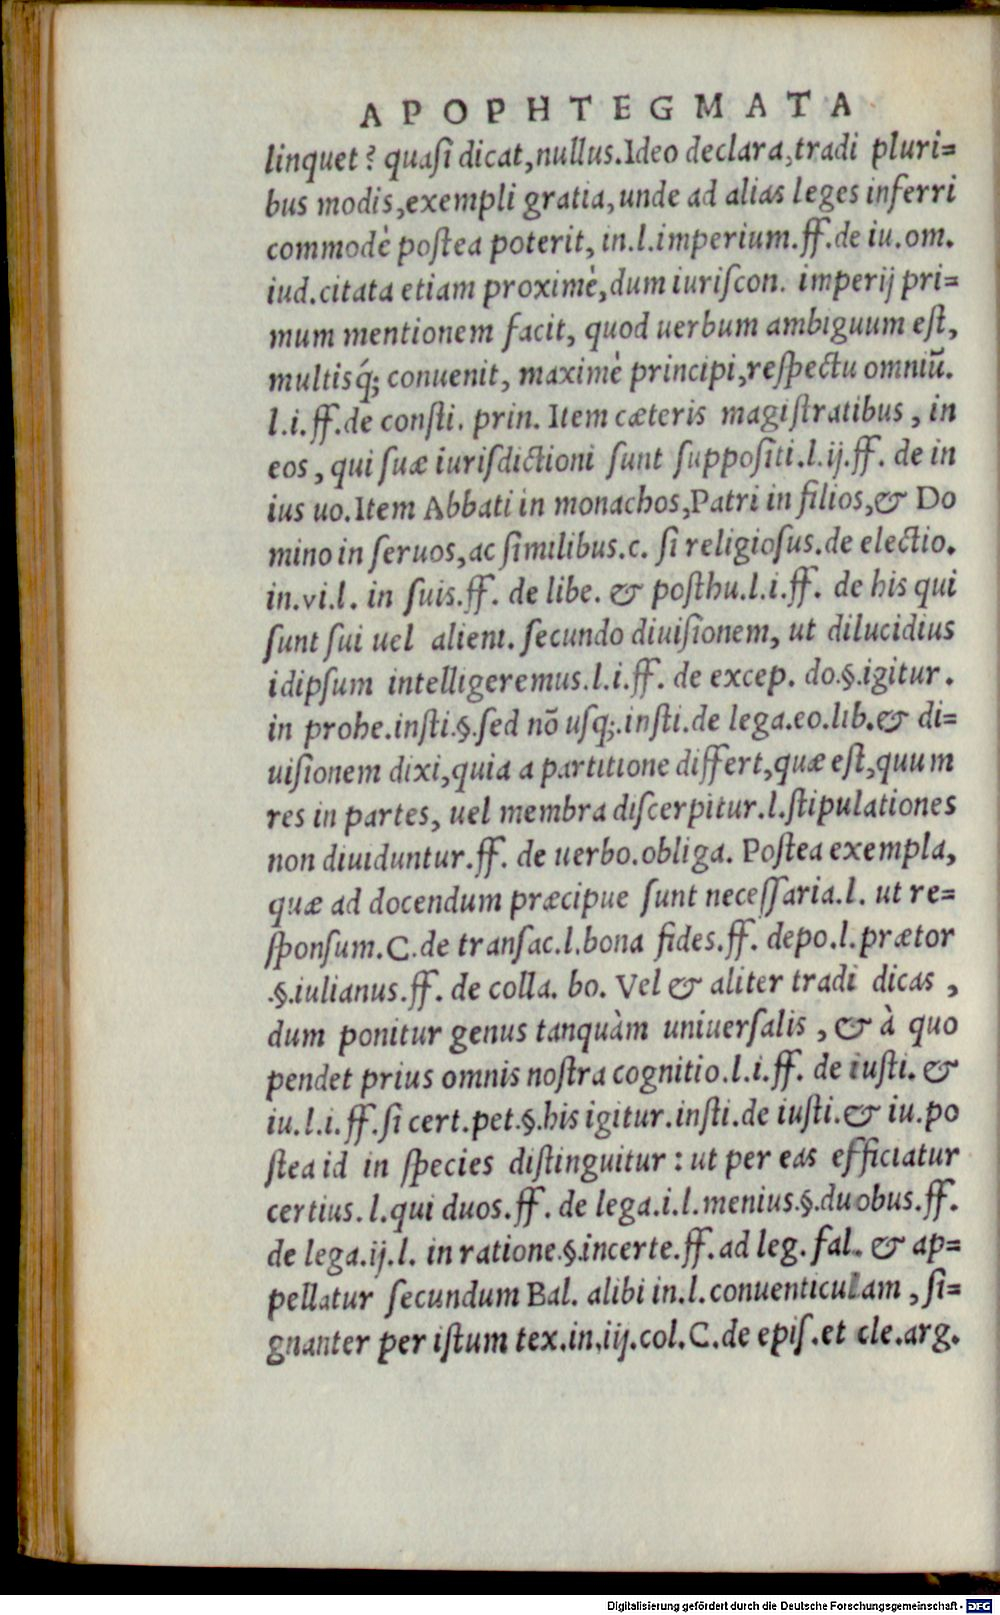 APOPHTEGMATA
linquet? quaſi dicat,nullus.Ideo declara,tradi pluri=
bus modis,exempli gratia, unde ad alias leges inferri
commodè poſtea poterit, in.l.imperium.ff.de iu.om.
iud.citata etiam proximè,dum iuriſcon. imperij pri=
mum mentionem facit, quod uerbum ambiguum eſt,
multisq́; conuenit, maximè principi,reſpectu omniũ.
l.i.ff.de conſti. prin. Item cæteris magiſtratibus, in
eos, qui ſuæ iuriſdictioni ſunt ſuppoſiti.l.ij.ff. de in
ius uo.Item Abbati in monachos,Patri in filios,& Do
mino in ſeruos,ac ſimilibus.c. ſi religioſus.de electio.
in.vi.l. in ſuis.ff. de libe. & poſthu.l.i.ff. de his qui
ſunt ſui uel alieni. ſecundo diuiſionem, ut dilucidius
idipſum intelligeremus.l.i.ff. de excep. do.§.igitur.
in prohe.inſti.§.ſed nõ uſq;.inſti.de lega.eo.lib.& di=
uiſionem dixi,quia a partitione differt,quæ eſt,quum
res in partes, uel membra diſcerpitur.l.ſtipulationes
non diuiduntur.ff. de uerbo.obliga. Poſtea exempla,
quæ ad docendum præcipue ſunt neceſſaria.l. ut re=
ſponſum.C.de tranſac.l.bona fides.ff. depo.l.prætor
.§.iulianus.ff. de colla. bo. Vel & aliter tradi dicas,
dum ponitur genus tanquàm uniuerſalis, & à quo
pendet prius omnis noſtra cognitio.l.i.ff. de iuſti. &
iu.l.i.ff.ſi cert.pet.§.his igitur.inſti.de iuſti.& iu.po
ſtea id in ſpecies diſtinguitur: ut per eas efficiatur
certius.l.qui duos.ff. de lega.i.l.menius.§.duobus.ff.
de lega.ij.l. in ratione.§.incerte.ff.ad leg. fal. & ap=
pellatur ſecundum Bal. alibi in.l.conuenticulam, ſi=
gnanter per iſtum tex.in.iij.col.C.de epiſ.et cle.arg.
Digitalisierung gefördert durch die Deutsche Forschungsgemeinschaft - DFG